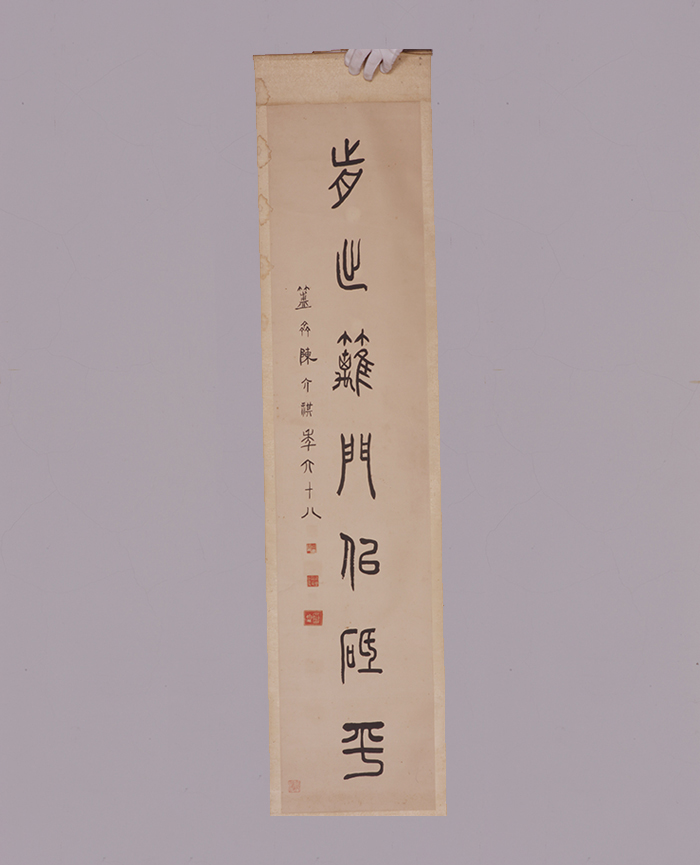 步出籬門佀砥平
簠齋陳介祺年六十八